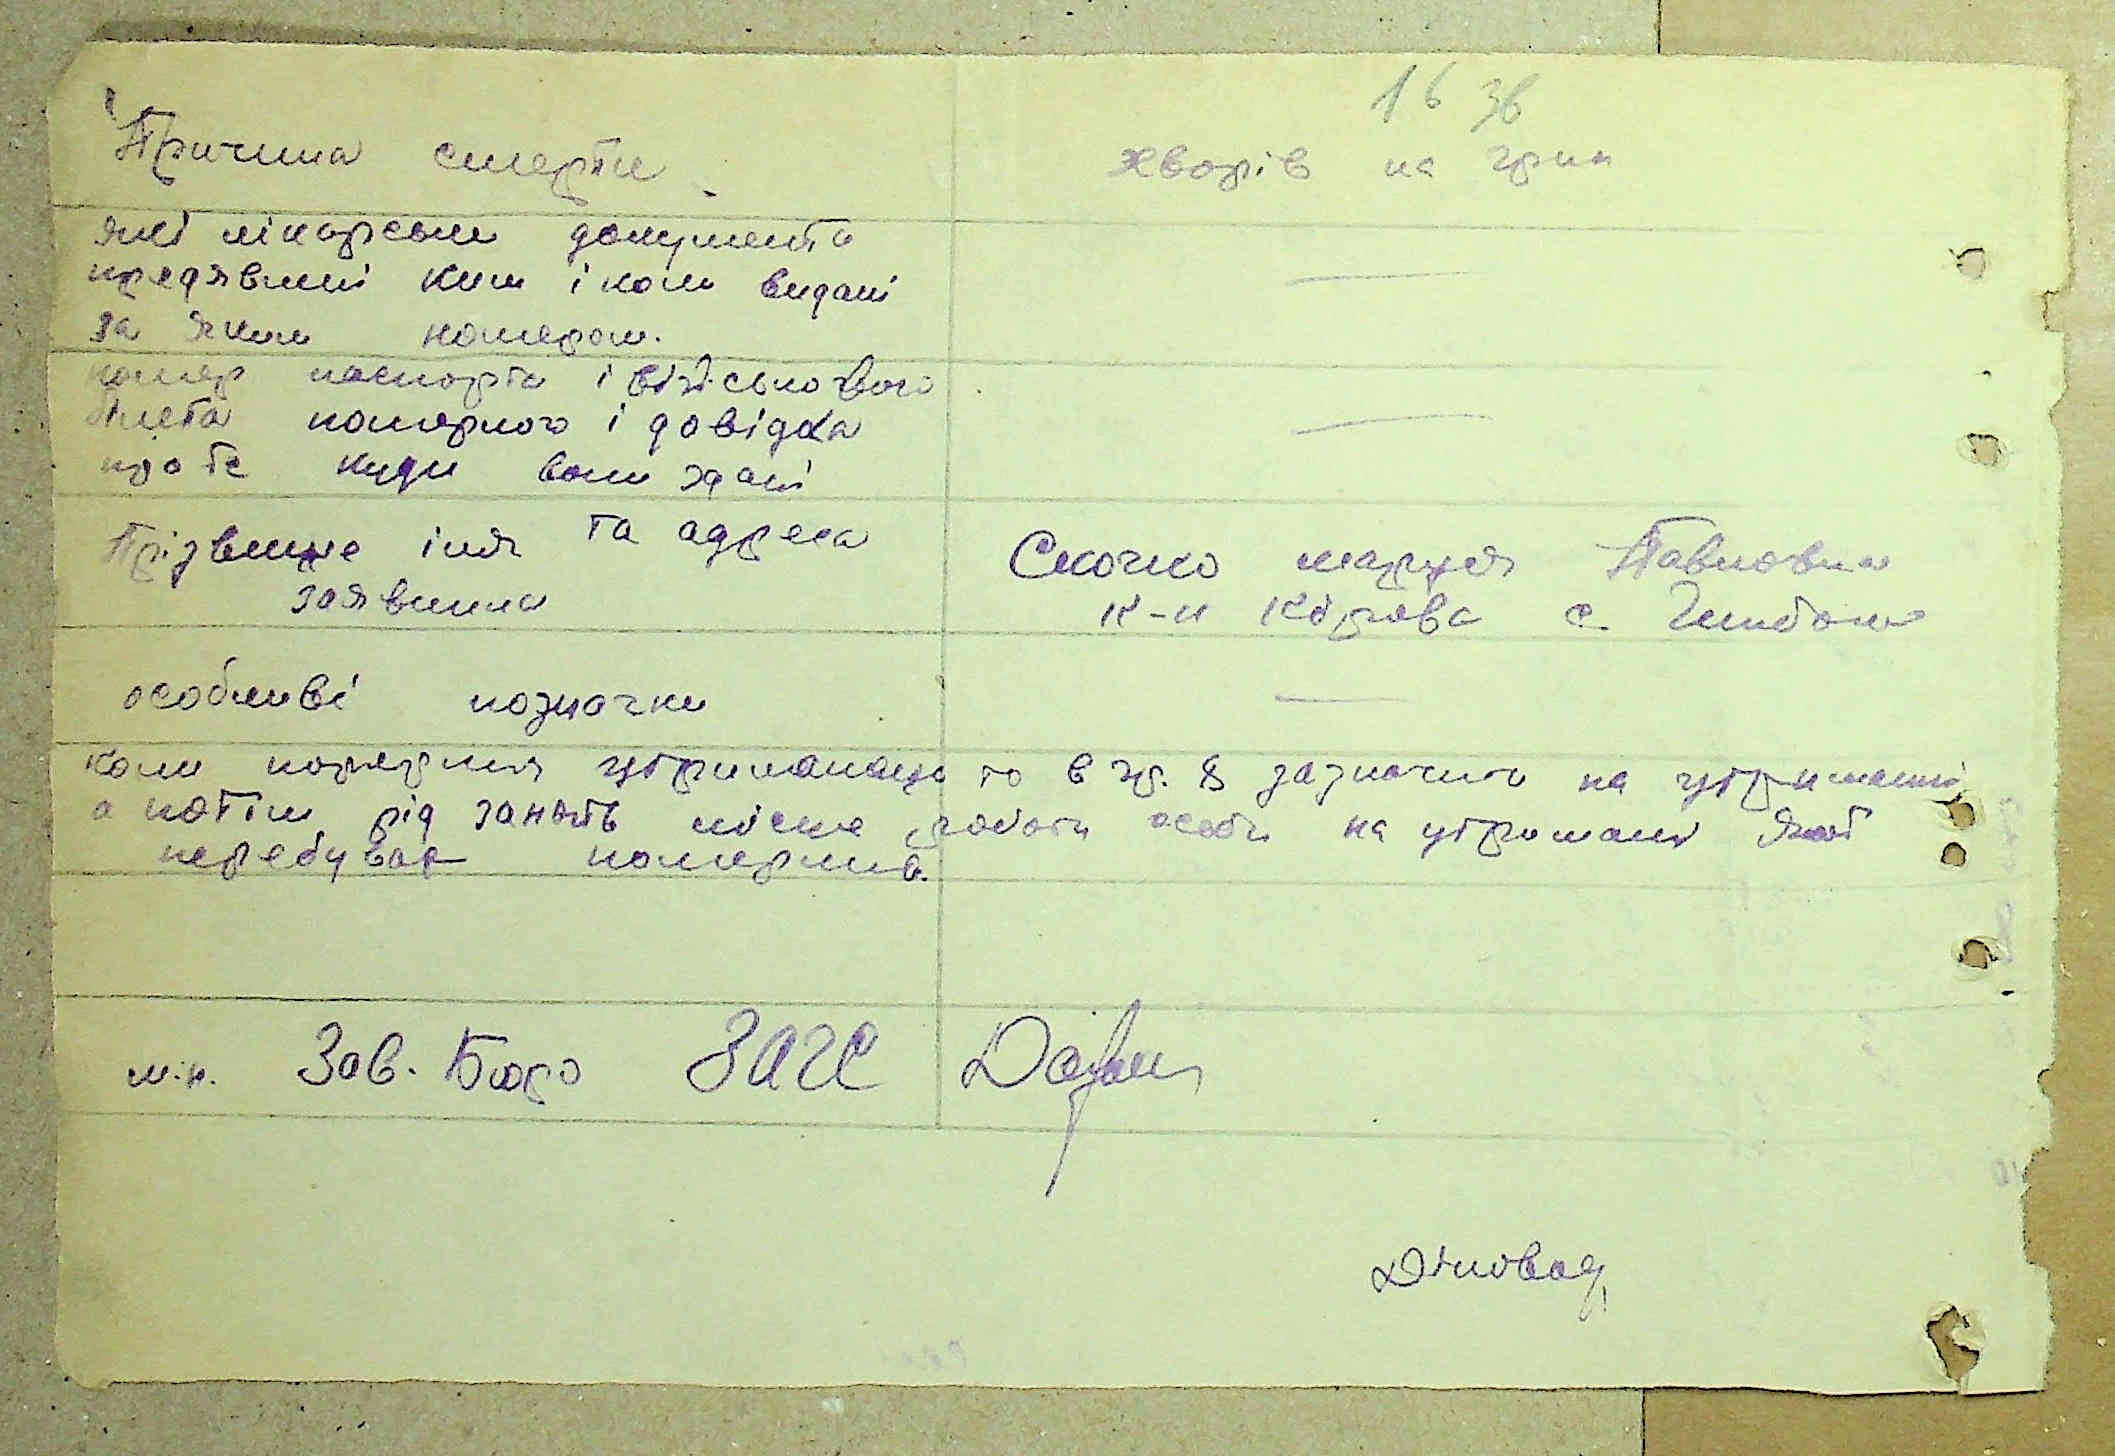 16 зв
Причина смерти хворів на грип
які лікарськи документа
предявлені ким і коли видані
за яким номером.
номер паспорта і військового
білета померлого і довідка
про те куди вони здані
Прізвище імя та адреса Скочко Марция Павловна
заявника к-п Кірова с.
особливі позначки
коли померлий утриманець то в гр. 8 зазначити на утриманні
а потім рід занять місце роботи особи на утримані якої
перебував померлий.
м.п. Зав. Бюро ЗАГС
Діловод